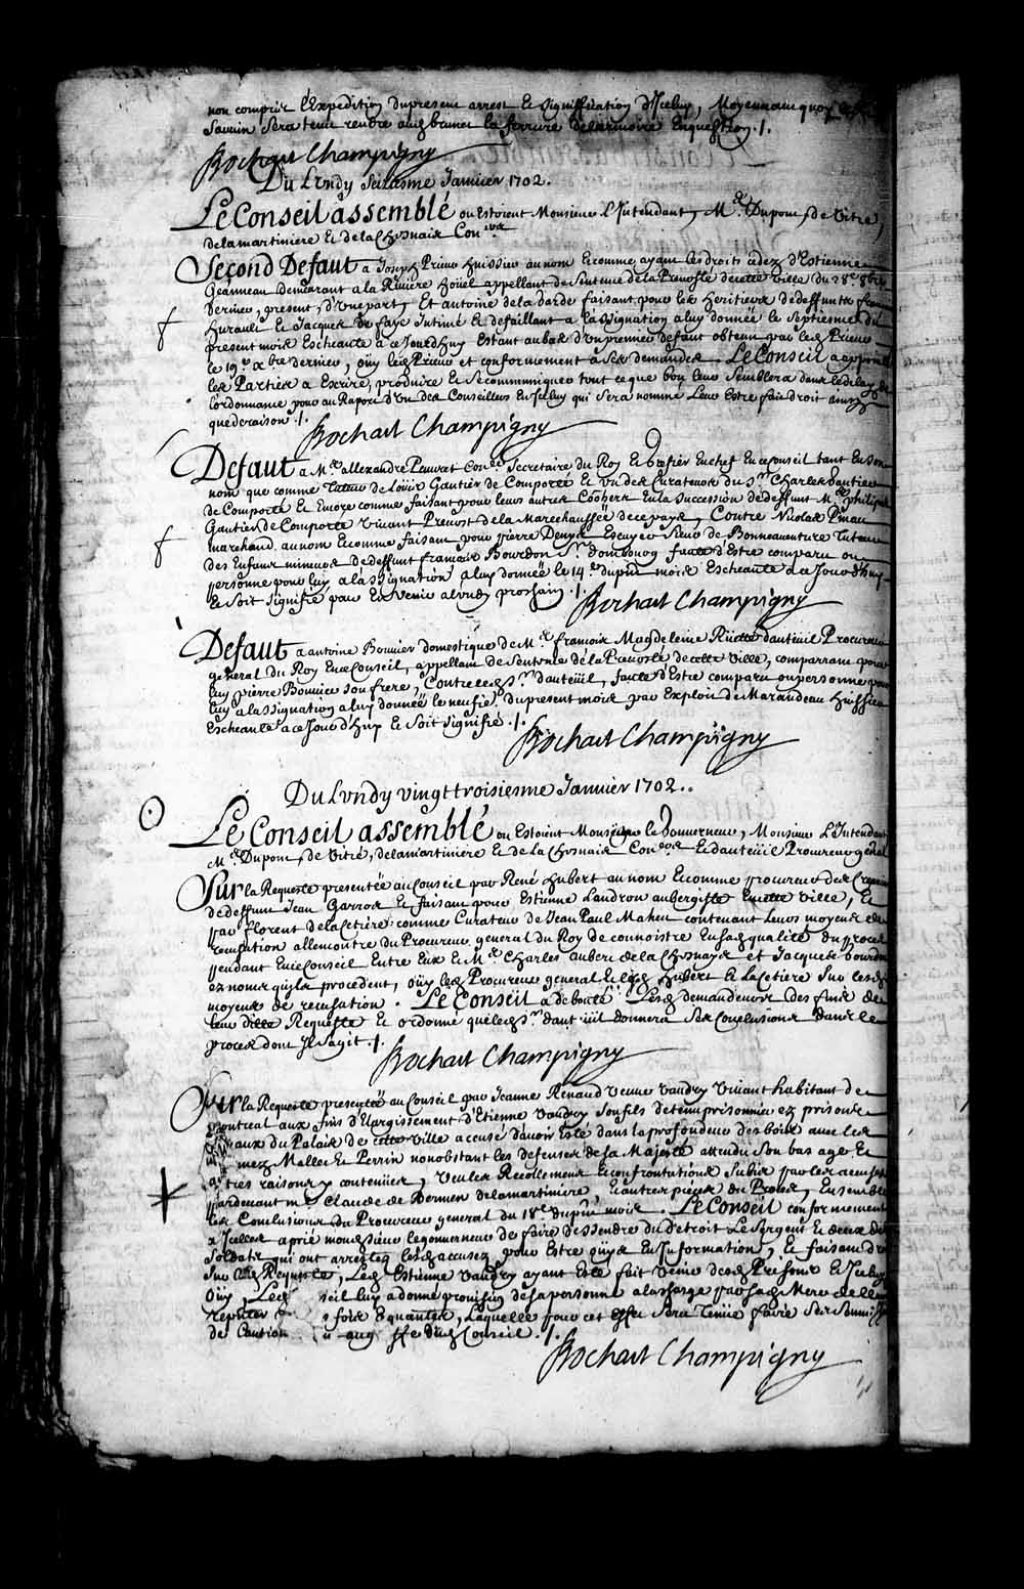 non compris l'Expedition dupresent arrest Et signiffication d'Iceluy, Moyennant quoy
Savarin Sera tenu rendre aud brunet la ferrure delarmoire Enquestion ./.
Bochart Champigny
Du Lundy Seiziesme Janvier 1702.
Le Conseil assemblé ou Estoient Monsieur L'Intendant, Mes. Dupont, de Vitré,
delamartiniere Et delaChesnaie Conrs
Second Defaut a Joseph Prieur huissier au nom Et comme ayant les droits cedez d'Estienne
Jeanneau demeurant a la Riviere Hoüel appellant de Sentence dela Prevosté decette ville du 28e 8bre
dernier, present, d'Une part, Et antoine dela Garde faisant pour les heritiers dedeffunts
hurault Et Jacques de faye Intimé Et defaillant a lassignation aluy donnée le Septiesme du
present mois Escheante a ce Jourd'huy Estant aubas d'un premier defaut obtenu par led Prieur
le 19e xbre dernier, oüy led Prieur et conformement a ses demandes. Le Conseil a appointé
les Parties a Escrire, produire Et Secommuniquer tout ceque bon leur Semblera dans ledelay de
l'ordonnance pour au Raport d'Un des Conseillers En Iceluy qui sera nommé Leur Estre fait droit ainsy
quederaison ./.
Bochart Champigny
Defaut a Me. allexandre Peuvret Coner Secretaire du Roy Et Grefier Enchef En ceConseil tant En son
nom que comme Tuteur de Loüis Gautier de Comporté Et Un des Curateurs du Sr Charles Gautier
de Comporté Et Encore comme faisant pour leurs autres Coherers En la succession dedeffunt Me. philipes
Gautier de Comporté Vivant Prevost dela Marechaussée decepays, Contre Nicolas Pinau
marchand au nom Et comme faisant pour pierre Denys Escuyer Sieur de Bonnaventure Tuteur
des Enfans mineurs dedeffunt francois Bourdon Sr. dombourg faute d'Estre comparu ou
personne pour luy a lassignation aluy donnée le 14e. dupnt mois Escheante a ce Jourd'huy
Et Soit Signifié pour En Venir aLundy prochain ./.
Bochart Champigny
Defaut a antoine Bonnier domestique de Me. francois Magdeleine Ruette dauteüil Procureur
general du Roy En ceConseil, appellant de Sentence dela Prevosté decette Ville, comparant pour
luy pierre Bonnier son frere, Contre led Sr. dauteüil, faute d'Estre comparu ou personne pour
luy a lassignation aluy donnée le neufie. dupresent mois par Exploit de Marandeau huissier
Escheante a ce Jourd'huy Et Soit Signifié ./.
Bochart Champigny
Du Lundy vingt troisiesme Janvier 1702..
Le Conseil assemblé ou Estoient Monsieur le Gouverneur, Monsieur L'Intendant
Mes. Dupont, de Vitré, delamartiniere Et de la Chesnaie Coners Et dauteüil Procureur general
Sur la Requeste presentée au Conseil par René hubert au nom Et comme procureur des Creanciers
dedeffunt Jean Garros Et faisant pour Estienne Landron aubergiste En cette Ville, Et
par florent delaCetiere comme Curateur de Jean Paul Maheu contenant Leurs moyens de
recusation allencontre du Procureur general du Roy de connoistre En sad qualité du procez
pendant En ceConseil Entre Eux Et Me. Charles aubert de la Chesnaye et Jacques Gourdeau
ez noms quils procedent, oüy led Procureur general Et lesd hubert Et laCetiere Sur lesd
moyens de recusation. Le Conseil a deboutté lesd demandeurs des fins de
leur ditte Requeste Et ordonné queled Sr. dauteüil donnera Ses Conclusions dans le
procez dont Il sagit ./.
Bochart Champigny
Sur la Requeste presentée au Conseil par Jeanne Renaud Veuve Vaudry Vivant habitant de
montreal aux fins d'Elargissement d'Etienne Vaudry Son fils detenu prisonnier ez prisons
aux du Palais de cette Ville accusé davoir Esté dans la profondeur des bois avec les
mez Mallet Et Perrin nonobstant les defenses de sa Majesté attendu Son bas age Et
autres raisons y contenües, Veu les Recollemens Et confrontations Subis par les accusés
pardevant me Claude de Bermen delamartiniere, Et autres pieces du Procez, Ensemble
les Conclusions du Procureur general du 18e. dupnt mois. Le Conseil conformement
a Icelles aprié monssieur legouverneur de faire dessendre du detroit Le Sergent Et deux des
soldats qui ont arrestez lesd accusez, pour Estre oüys En Information, Et faisant droit
Sur lad Requeste, Led Estienne Vaudry ayant Esté fait Venir desd Prisons Et Iceluy
Oüy, Led seil luy a donné provision desa personne alacharge parsad Mere dele
repnter fois Et quantes, Laquelle pour cet effet Sera Tenüe faire Ses Soumissions
de Caution au greffe dud Conseil ./.
Bochart Champigny